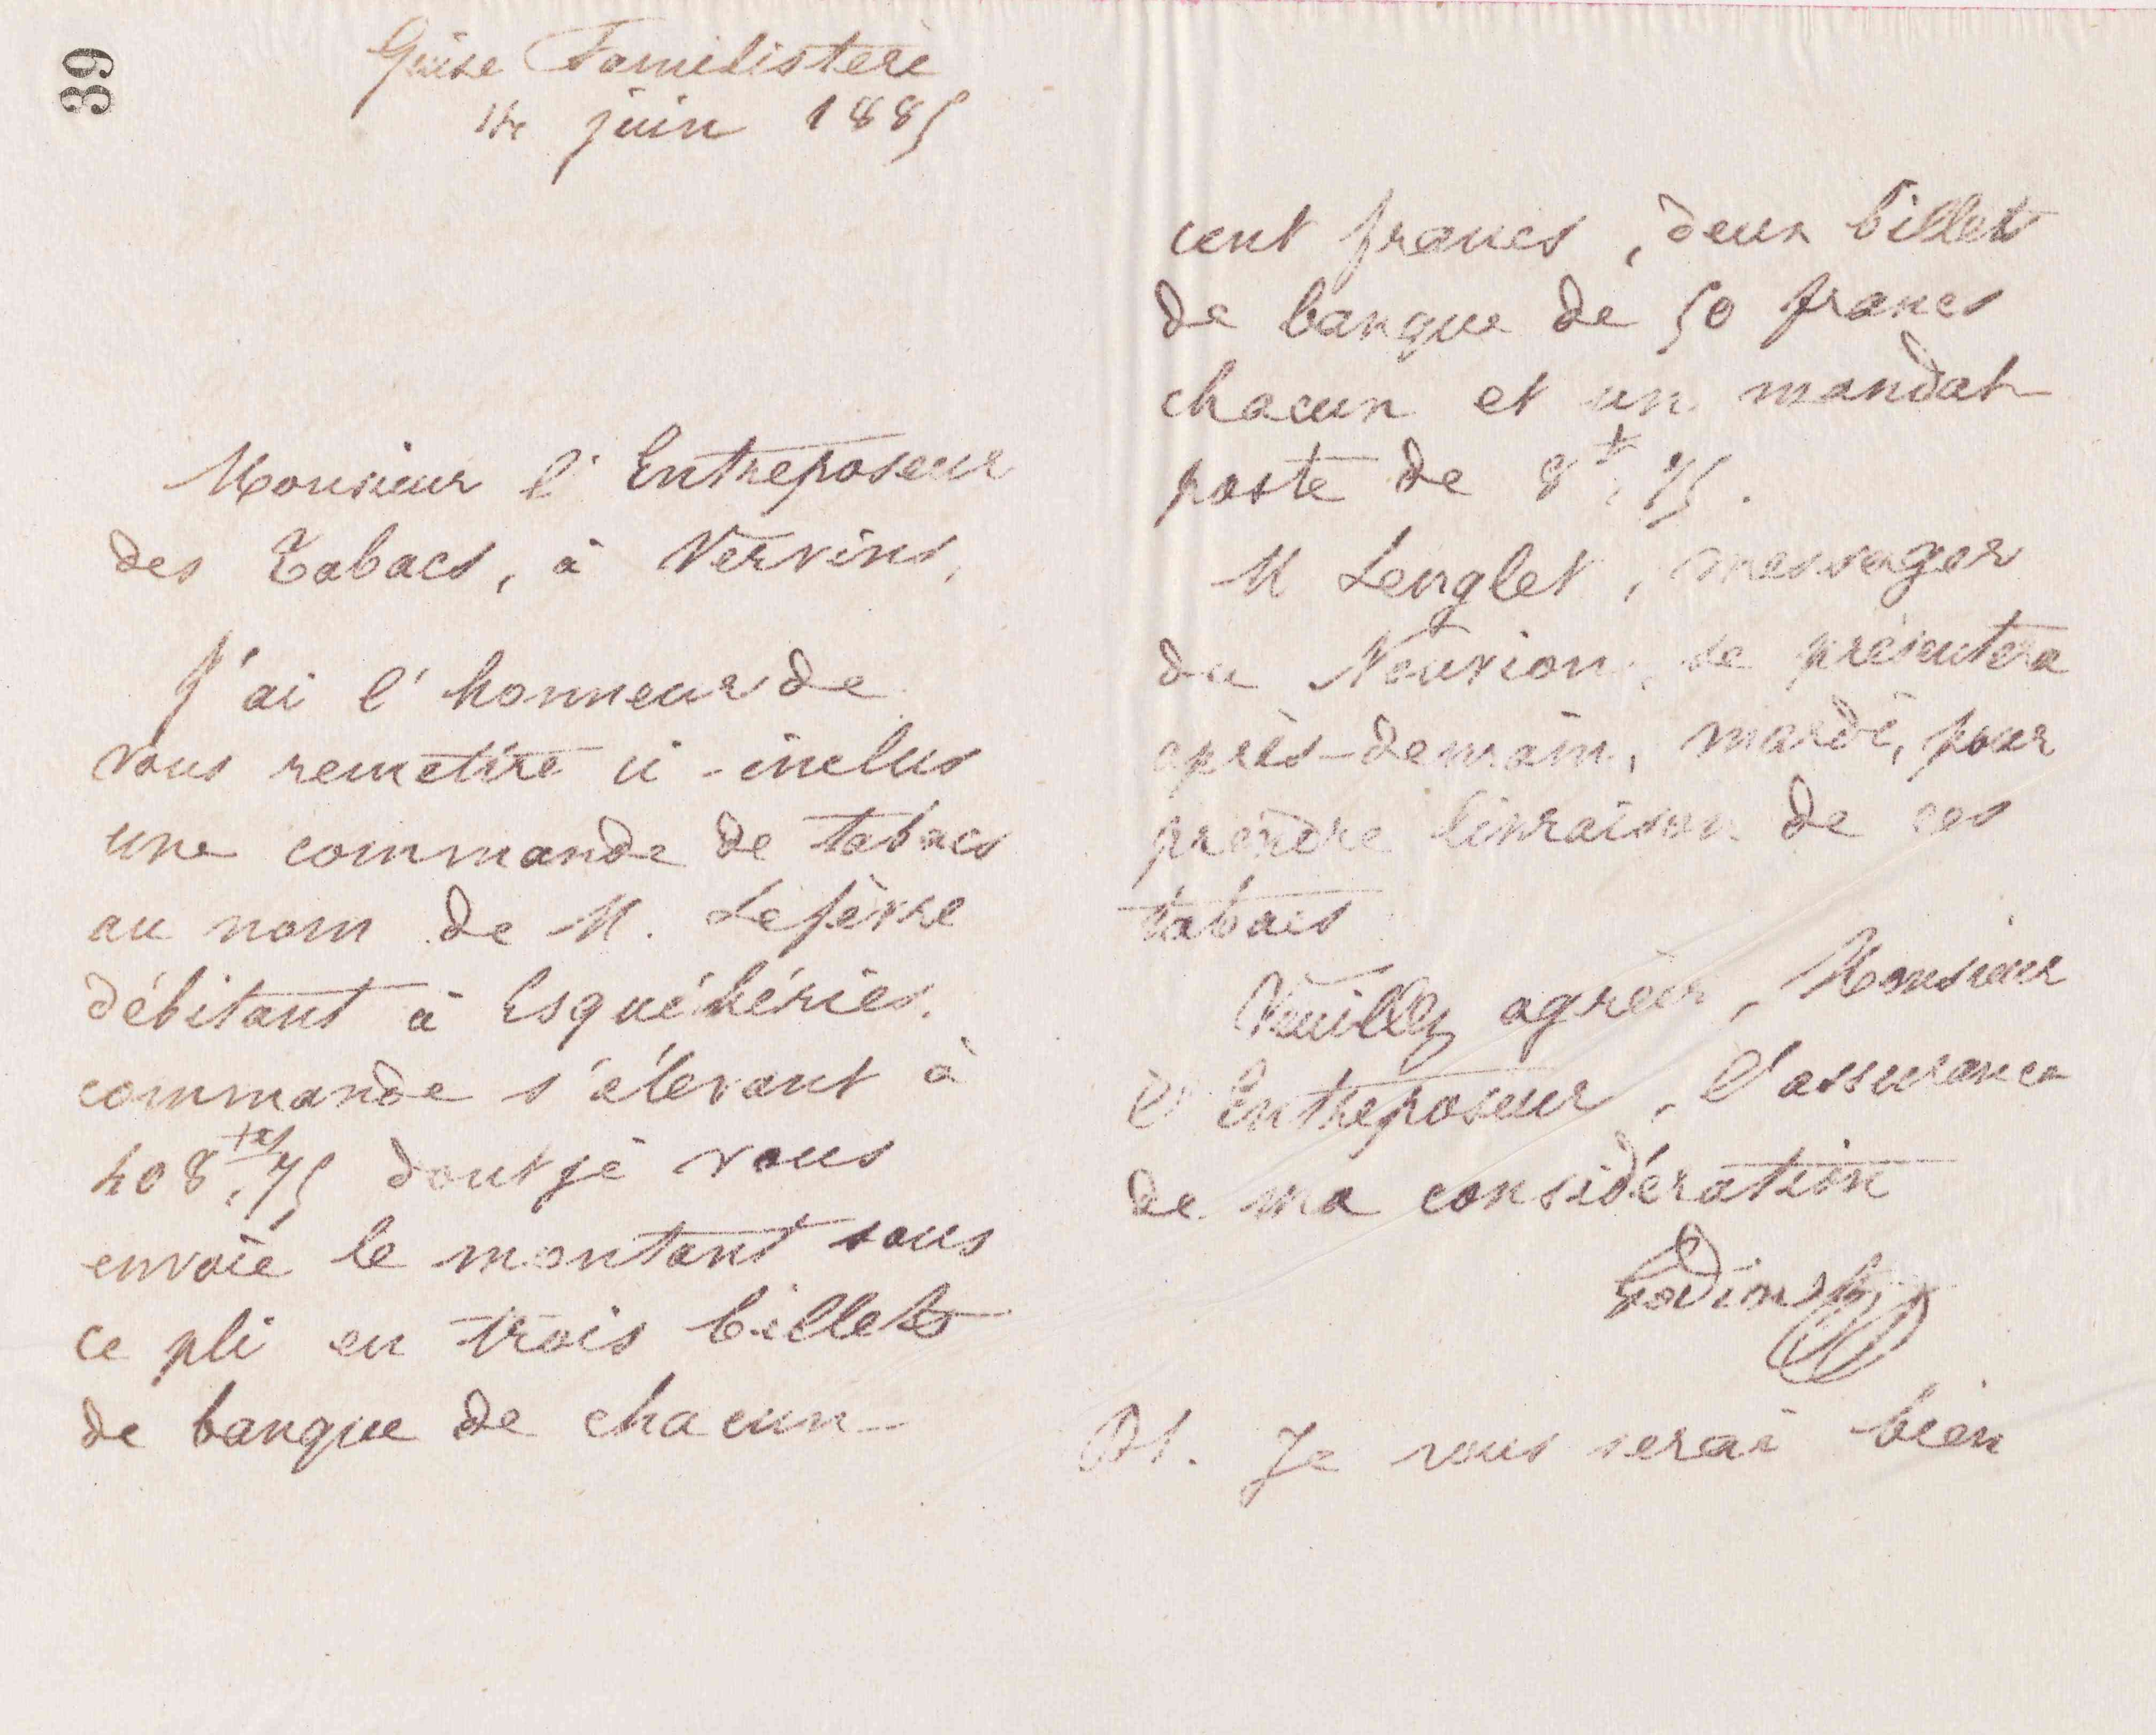 39
Guise Familistère
14 juin 1885
Monsieur l'Entreposeur
des Tabacs, à Vervins,
J'ai l'honneur de
vous remettre ci-inclus
une commande de tabacs
au nom de M. Lefèvre
débitant à Esquéhéries.
commande s'élevant à
408 frs, 75 dont je vous
envoie le montant sous
ce pli en trois billets
de banque de chacun
cent francs, deux billets
de banque de 50 francs
chacun et un mandat
poste de 8 f, 75.
M Lenglet, messager
du Nouvion, se présentera
après-demain, mardi, pour
prendre livraison de ces
tabacs
Veuillez agréer, Monsieur
l'Entreposeur, l'assurance
de ma considération
Godin
PS. Je vous serai bien